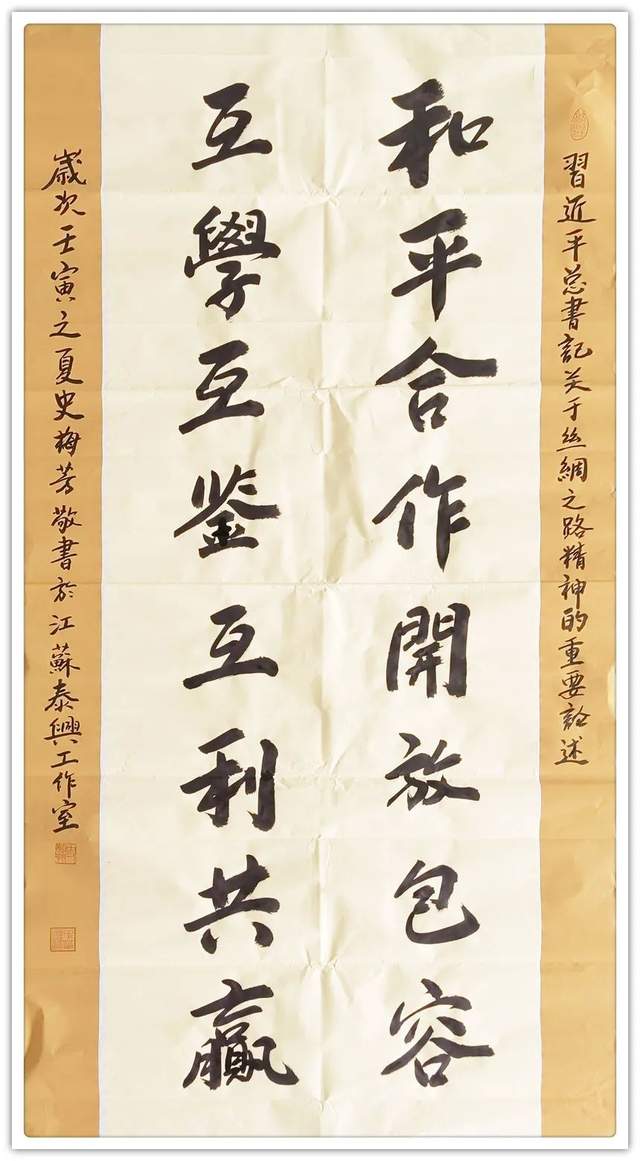 習近平总書記关于丝綢之路精神的重要論述
和平合作開放包容
互學互鉴互利共贏
歲次壬寅之夏史梅芳敬書於江蘇泰興工作室